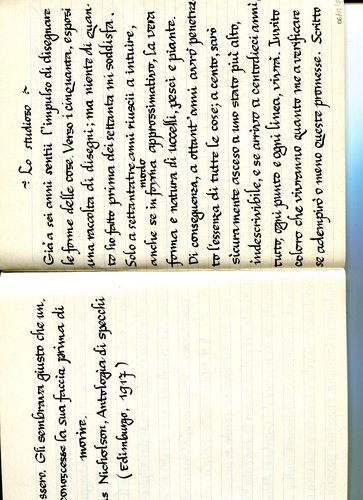 ssero. Gli sembrava giusto che un,
conoscesse la sua faccia prima di
morire.
Nicholson, Antologia di specchi
(Edimburgo, 1917)
~ Lo studioso ~
Già a sei anni sentii l'impulso di disegnare
le forme delle cose. Verso i cinquanta, esposi
una raccolta di disegni; ma niente di quan-
to ho fatto prima dei settanta mi soddisfa.
Solo a settantatre anni riuscii a intuire,
modo
anche se in forma approssimativo, la vera
forma e natura di uccelli, pesci e piante.
Di conseguenza, a ottant'anni avrò penetra
to l'essenza di tutte le cose; a cento, sarò
sicuramente asceso a uno stato più alto,
indescrivibile, e se arrivo a centodieci anni,
tutto, ogni punto e ogni linea, vivrà. Invito
coloro che vivranno quanto me a verificare
se adempirò o meno queste promesse. Scritto